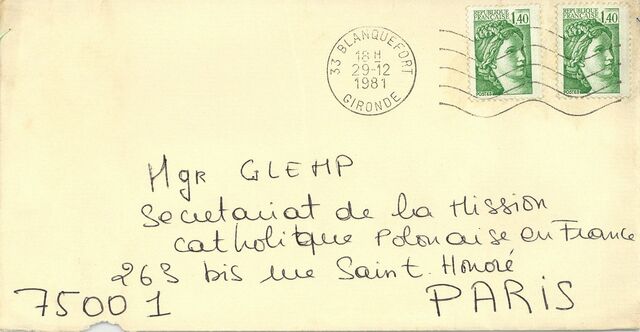 REPUBLIQUE FRANÇAISE 1,40
REPUBLIQUE FRANÇAISE 1,40
POSTES
POSTES
33 BLANQUEFORT
18 H
29-12
1981
GIRONDE
Mgr GLEMP
Secretariat de la Mission
catholique Polonaise en France
263 bis rue Saint. Honoré
75001 PARIS